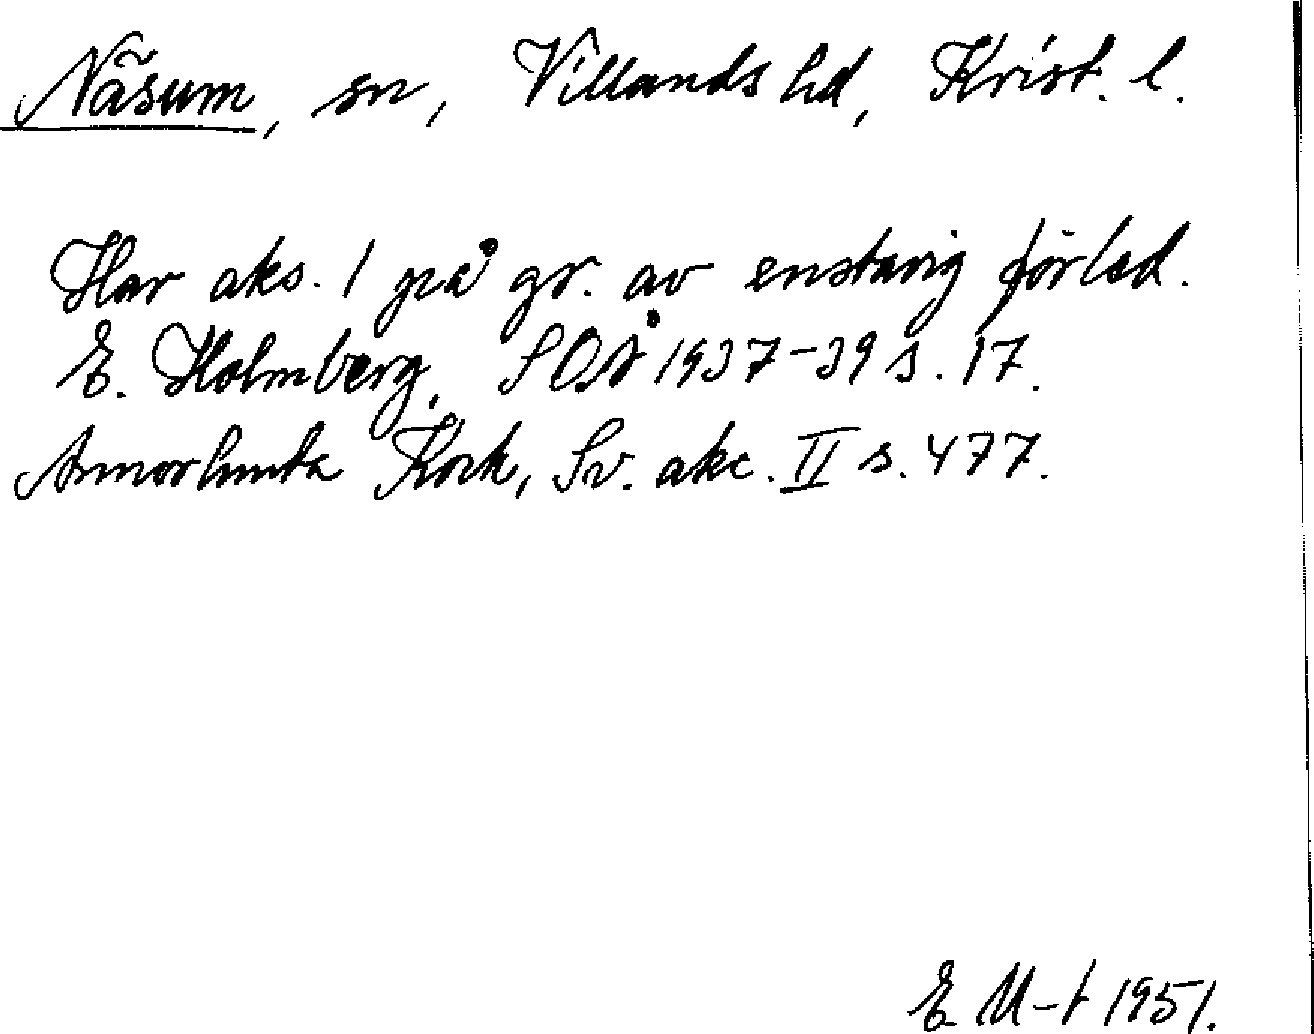 Näsum, sn, Villands hd, Krist. l.
Har aks. 1 på gr. av enstavig förled.
E. Holmberg, SOÅ 1937-39 s. 17.
Annorlunda Kock, Sv. akc. II s. 477.
E M-t 1951.